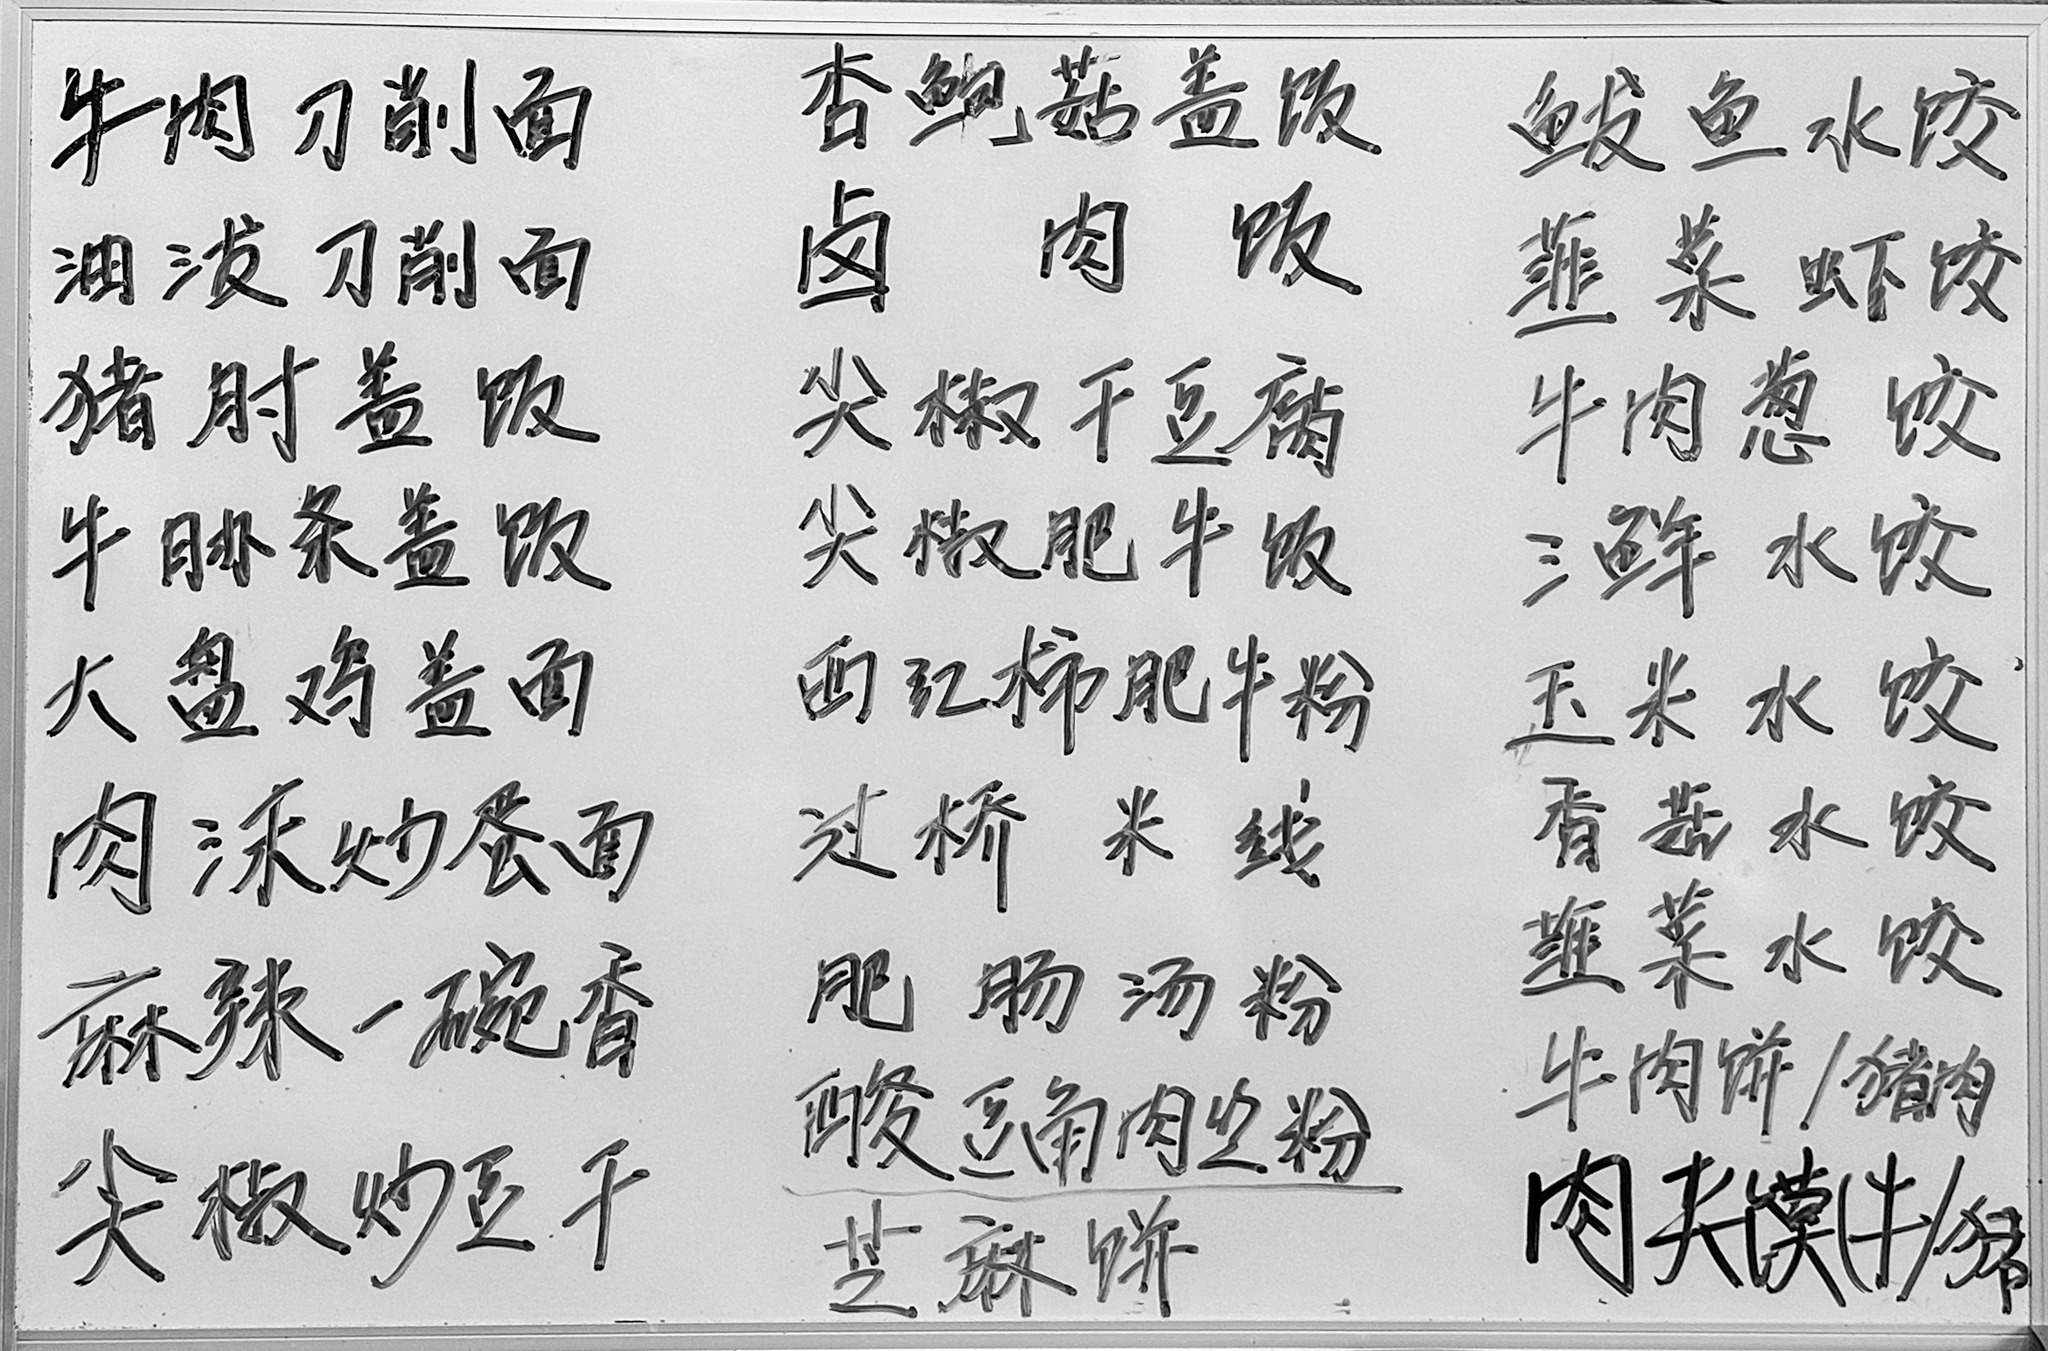 牛肉刀削面
油泼刀削面
猪肘盖饭
牛腩条盖饭
大盘鸡盖面
肉沫炒蛋面
麻辣一碗香
尖椒炒豆干
杏鲍菇盖饭
卤肉饭
尖椒干豆腐
尖椒肥牛饭
西红柿肥牛粉
过桥米线
肥肠汤粉
酸豆角肉尘粉
芝麻饼
鲅鱼水饺
韮菜虾饺
牛肉葱饺
三鲜水饺
玉米水饺
香菇水饺
韮菜水饺
牛肉饼/猪肉
肉夹馍(牛/猪